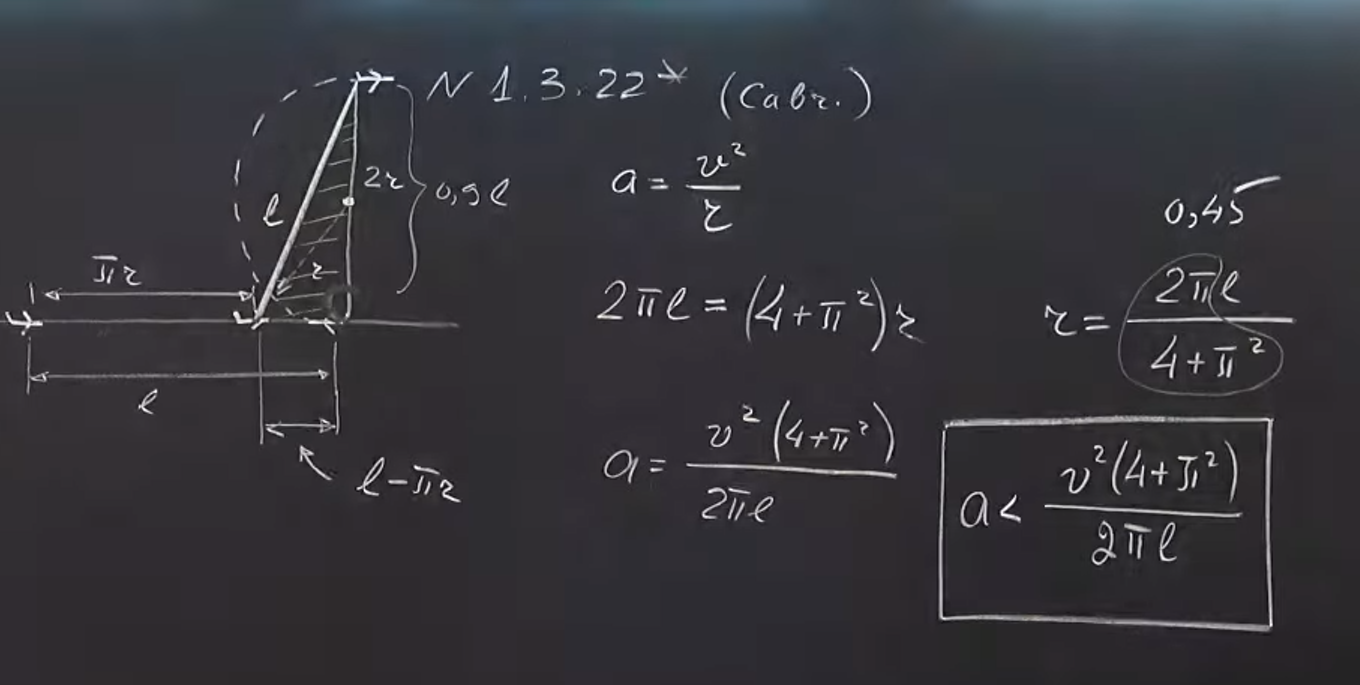 N 1.3.22* (Савч.)
a = v²/r
2r
0,9l
l
r
πr
l
l-πr
2πl = (4+π²)r
a = v²(4+π²)/2πl
0,45
r = 2πl/4+π²
a < v²(4+π²)/2πl